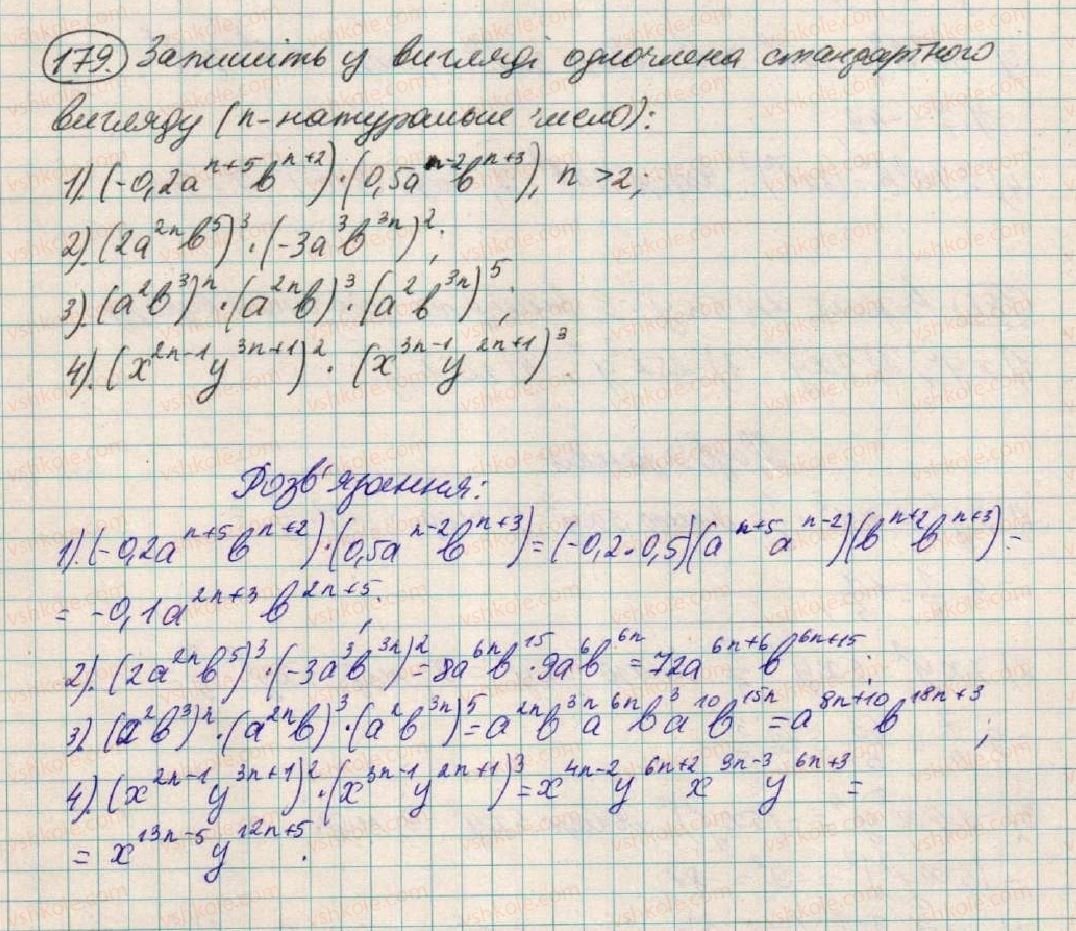 179. Запишіть у вигляді одночлена стандартного
вигляду (n-натуральне число):
1). (-0,2a^{n+5}b^{n+2})·(0,5a^{n-2}b^{n+3}), n>2;
2). (2a^{2n}b^5)^3·(-3a^3b^{3n})^2;
3). (a^2b^3)^n·(a^{2n}b)^3·(a^2b^{3n})^5;
4). (x^{2n-1}y^{3n+1})^2·(x^{3n-1}y^{2n+1})^3.
Розв'язання:
1). (-0,2a^{n+5}b^{n+2})·(0,5a^{n-2}b^{n+3})=(-0,2·0,5)(a^{n+5}a^{n-2})(b^{n+2}b^{n+3})=
= -0,1a^{2n+3}b^{2n+5};
2). (2a^{2n}b^5)^3·(-3a^3b^{3n})^2=8a^{6n}b^{15}·9a^6b^{6n}=72a^{6n+6}b^{6n+15};
3). (a^2b^3)^n·(a^{2n}b)^3·(a^2b^{3n})^5=a^{2n}b^{3n}a^{6n}b^3a^{10}b^{15n}=a^{8n+10}b^{18n+3};
4). (x^{2n-1}y^{3n+1})^2·(x^{3n-1}y^{2n+1})^3=x^{4n-2}y^{6n+2}x^{9n-3}y^{6n+3}=
= x^{13n-5}y^{12n+5}.